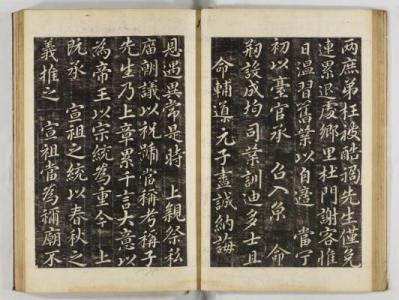 兩庶弟枉被酷禍先生僅免
連累退處鄉里杜門謝客惟
日溫習舊業以自適 當宁
初以臺官承 召入京 命
剏設成均司業訓迪多士且
命輔導元子盡誠納誨
恩遇異常是時 上親祭私
廟朝議以祝 當稱考稱子
先生乃上章累千言大意以
為帝王以宗統為重今 上
既承 宣祖之統以春秋之
義推之 宣祖當為禰廟不